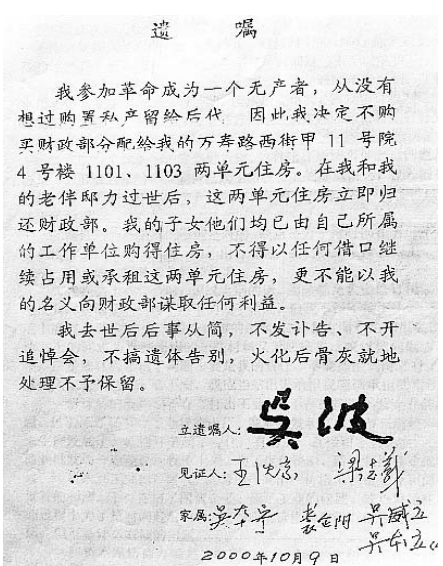 遗 嘱
我参加革命成为一个无产者，从没有
想过购置私产留给后代 因此，我决定不购
买财政部分配给我的万寿路西街甲 11 号院
4 号楼 1101、1103 两单元住房。在我和我
的老伴邸力过世后，这两单元住房立即归
还财政部。我的子女他们均已由自己所属
的工作单位购得住房，不得以任何借口继
续占用或承租这两单元住房，更不能以我
的名义向财政部谋取任何利益。
我去世后后事从简，不发讣告、不开
追悼会，不搞遗体告别，火化后骨灰就地
处理不予保留。
立遗嘱人：吴波
见证人：
家属：吴本宁 吴威立 吴本立
2000年10月9日